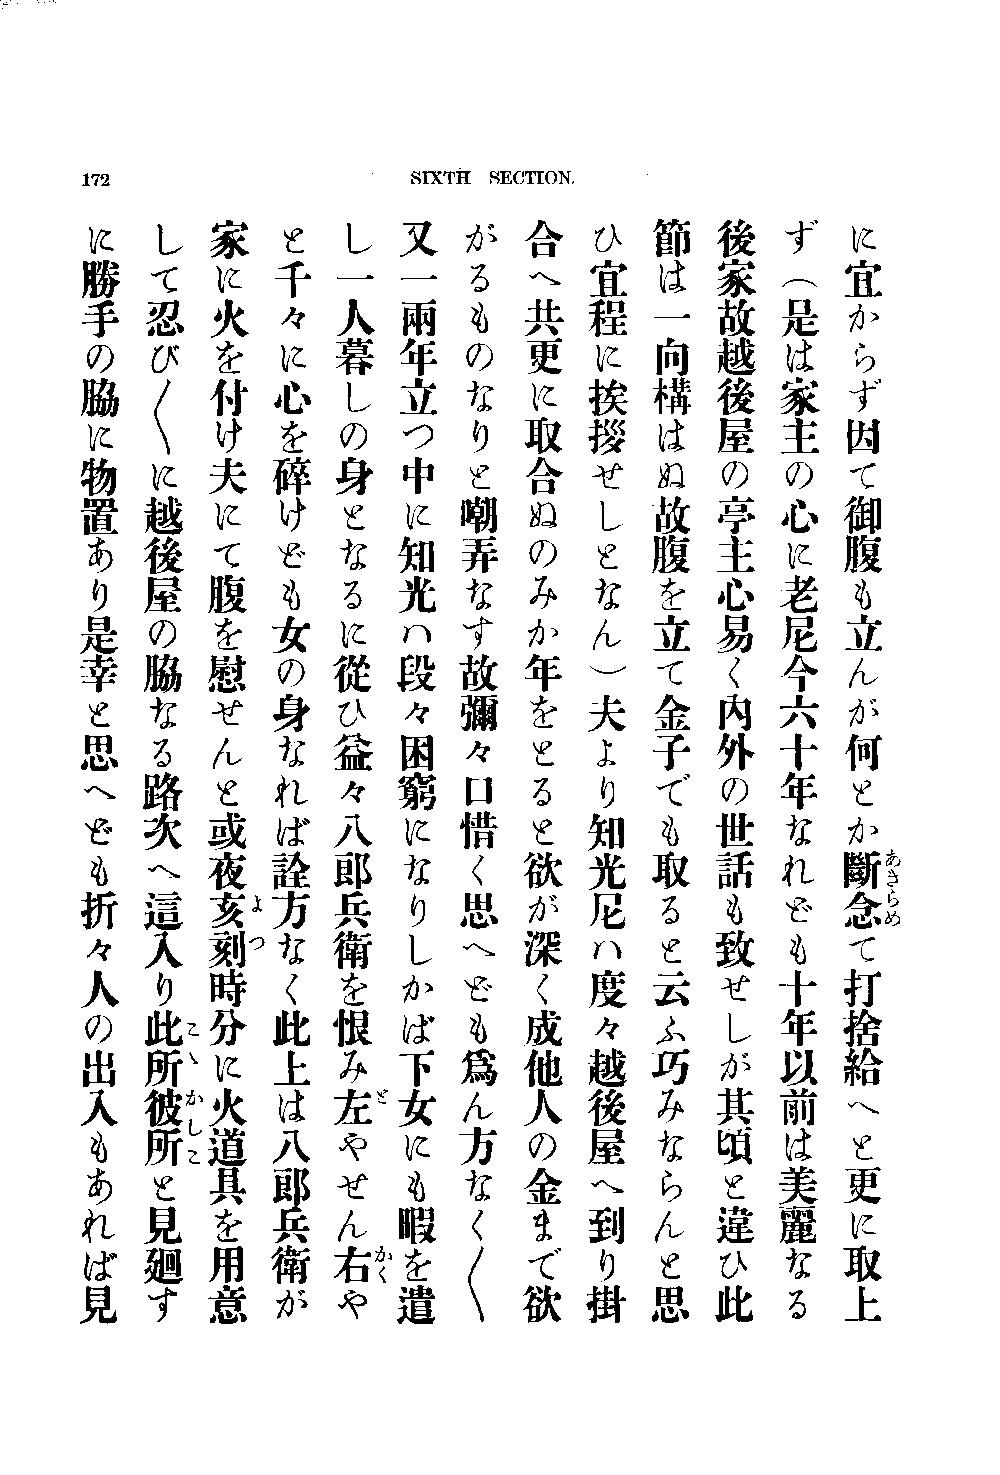 172 SIXTH SECTION.
に宜からず因て御腹も立んが何とか斷念て打捨給へと更に取上
あきらめ
ず（是は家主の心に老尼今六十年なれども十年以前は美麗なる
後家故越後屋の亭主心易く内外の世話も致せしが其頃と違ひ此
節は一向構はぬ故腹を立て金子でも取ると云ふ巧みならんと思
ひ宜程に挨拶せしとなん）夫より知光尼ハ度々越後屋へ到り掛
合へ共更に取合ぬのみか年をとると欲が深く成他人の金まで欲
がるものなりと嘲弄なす故彌々口惜く思へども爲ん方なく〱
又一兩年立つ中に知光ハ段々困窮になりしかば下女にも暇を遣
し一人暮しの身となるに從ひ益々八郎兵衛を恨み左やせん右や
ど かく
と千々に心を碎けども女の身なれば詮方なく此上は八郎兵衛が
家に火を付け夫にて腹を慰せんと或夜亥刻時分に火道具を用意
よつ
して忍び〱に越後屋の脇なる路次へ這入り此所彼所と見廻す
こゝ かしこ
に勝手の脇に物置あり是幸と思へども折々人の出入もあれば見